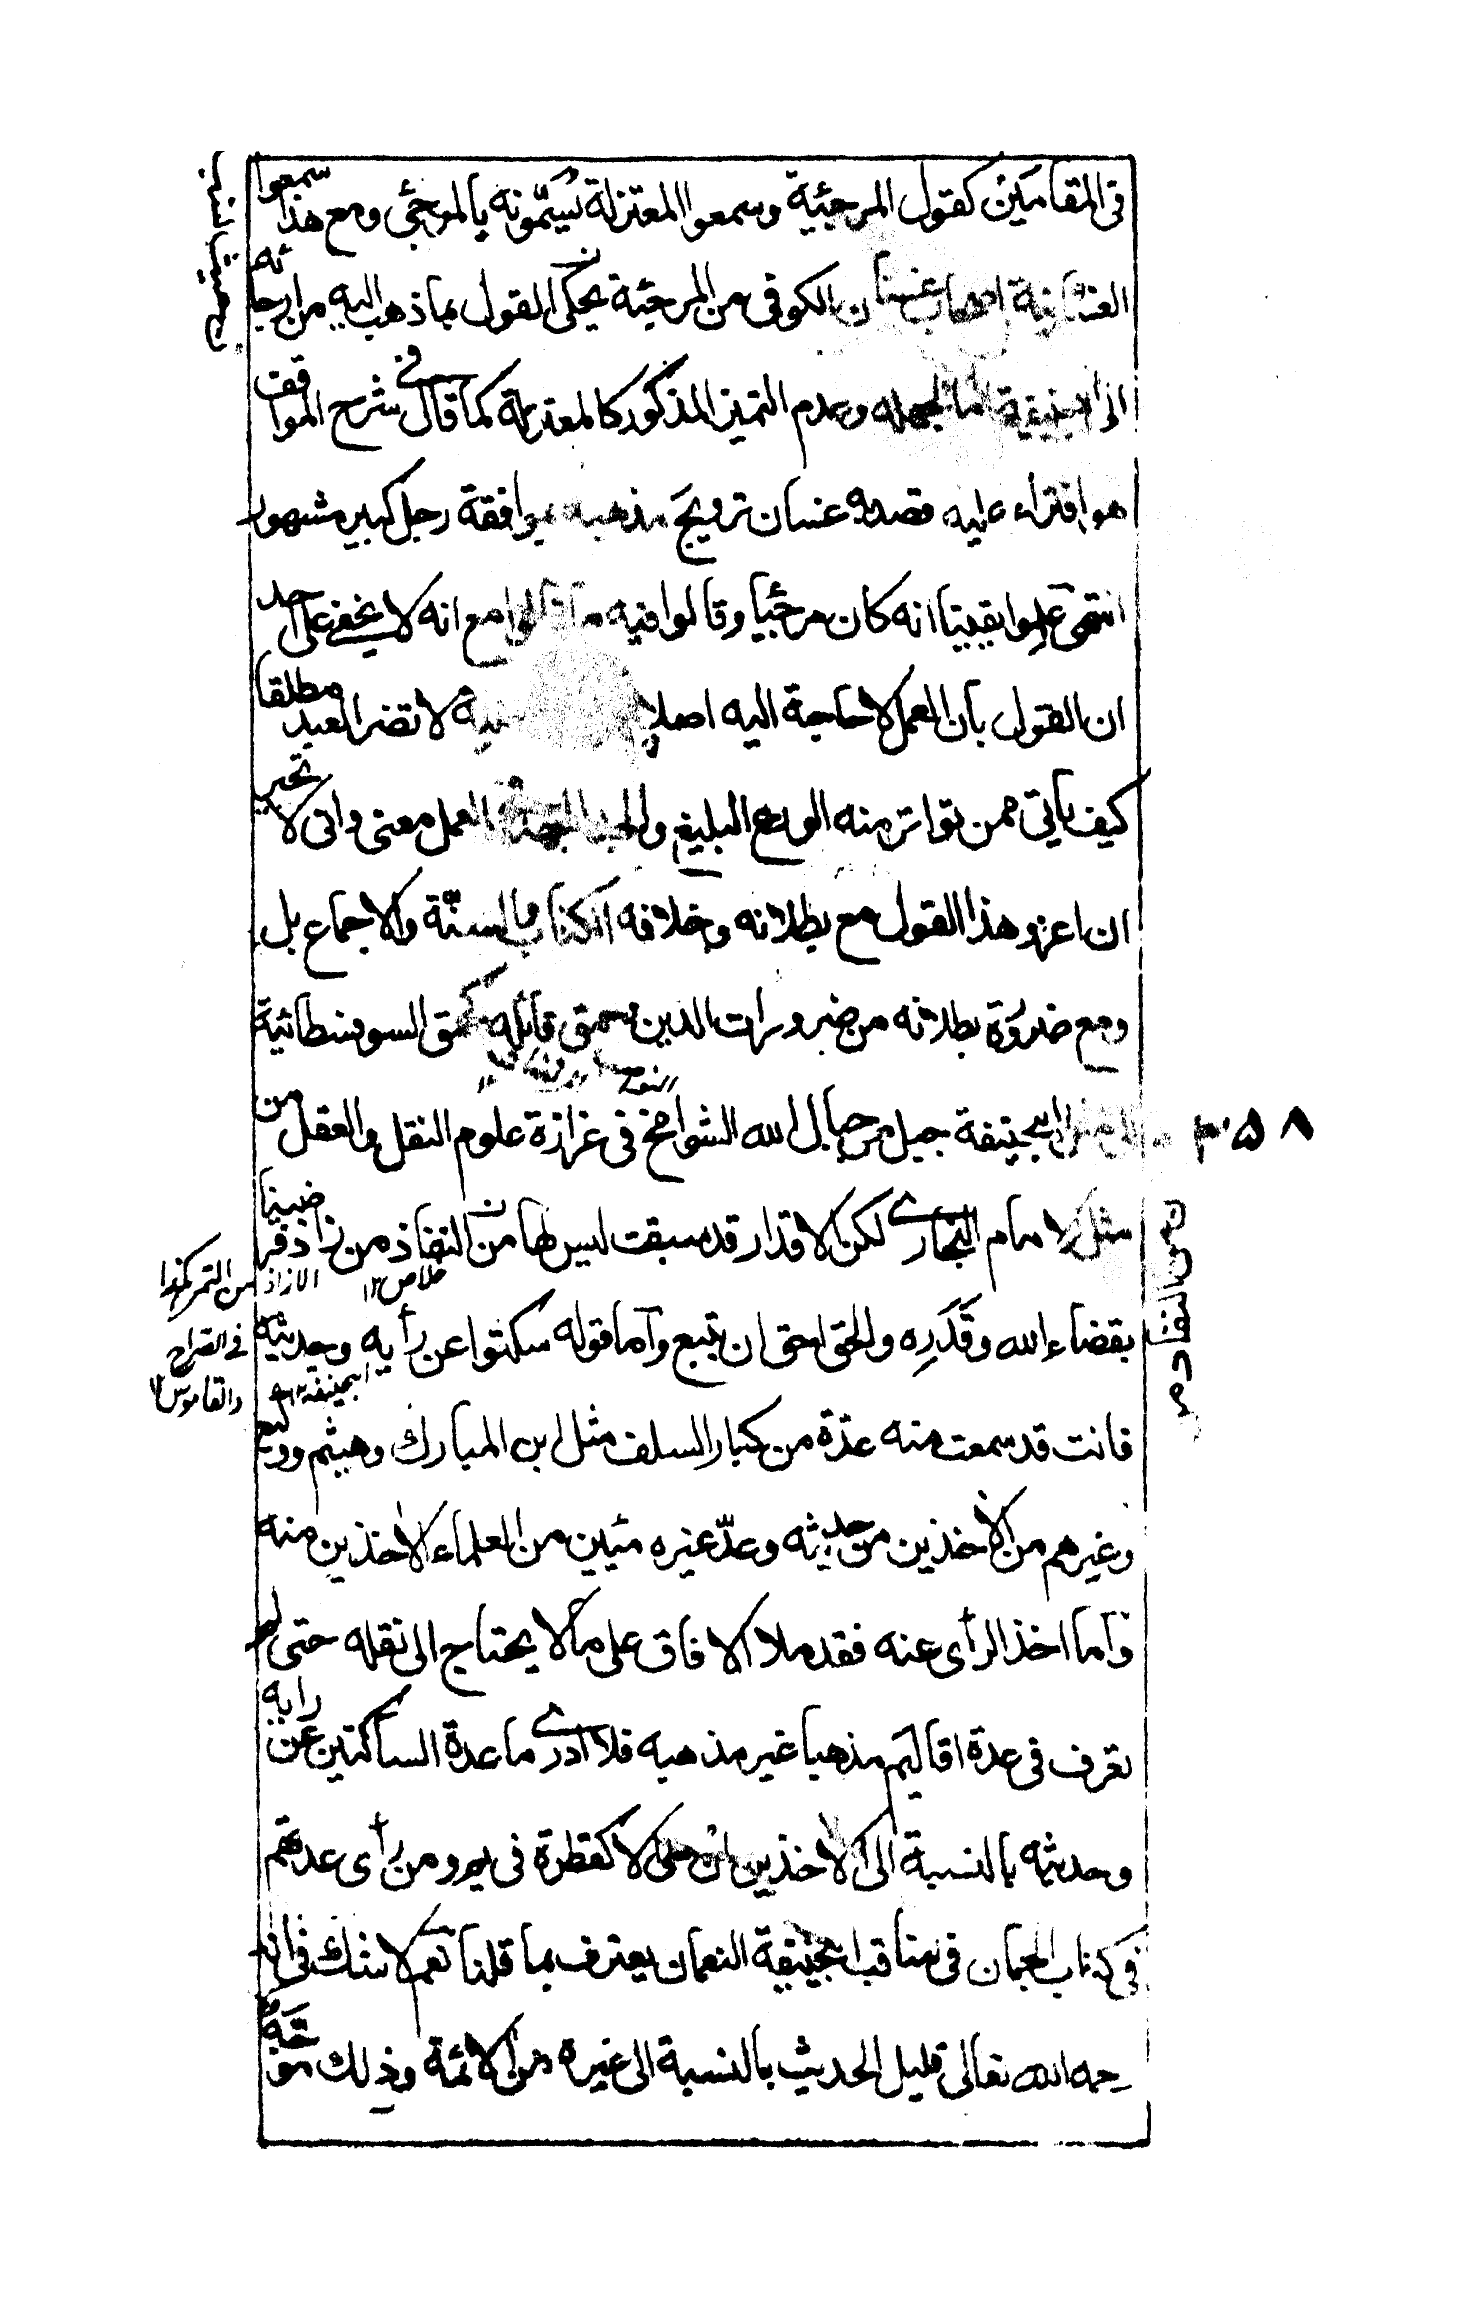 فى المقامَين كقول المرجئية وسمعوا المعتزلة يُسَمّونه بالمرجئى ومع هذا سمعوا
الغسانية اصحاب غسان الكوفى من المرجئة يحكى القول بما ذهب اليه من ارجائه
ابى حنيفة وعدم التميز المذكور كالمعتزلة كما قال فى شرح المواقف
هو افتراء عليه قصد به غسان ترويج مذهبه بموافقة رجل كبير مشهور
انتهى علموا يقينا انه كان مرجئيا وقالوا فيه ما قالوا مع انه لا يخفى على احد
ان القول بان العمل لا حاجة اليه اصلا لا تضر العبد مطلقا
كيف يأتى ممن تواتر منه الورع البليغ العمل معنى وانى لا تحير
ان اعزو هذا القول مع بطلانه وخلافه الكتاب والسنّة والاجماع بل
ومع ضرورة بطلانه من ضرورات الدين وحمق قائله كحمق السوفسطائية
ابيحنيفة جبل من جبال الله الشوامخ فى غزازة علوم النقل والعقل من
مثل الامام البخارى لكن الاقدار قد سبقت ليس لها من النفاذ من زاذ فرضينا
بقضاء الله وقَدَرِه والحق احق ان يتبع وآما قوله سكتوا عن رأيه وحديثه
فانت قد سمعت منه عدّة من كبار السلف مثل ابن المبارك وهيثم ووكيع
وغيرهم من الآخذين من حديثه وعدّ غيره مئين من العلماء الآخذين منه
وآما اخذ الرأى عنه فقد ملا الافاق على ما لا يحتاج الى نقله حتى لم
تعرف فى عدة اقاليم مذهبا غير مذهبه فلا ادرى ما عدة الساكتين عن رايه
وحديثه بالنسبة الى الآخذين الا كقطرة فى يم ومن رأى عدتهم
فى كتاب الجمان فى مناقب ابيحنيفة النعمان يعترف بما قلنا نعم لا شك فى انه
رحمه الله تعالى قليل الحديث بالنسبة الى غيره من الائمة وذلك
۳۵۸
من النفاد
خلاص ۱۲
الازاذ من التمر كذا
فى الصراح
والقاموس ۱۲
ابيحنيفة ۱۲